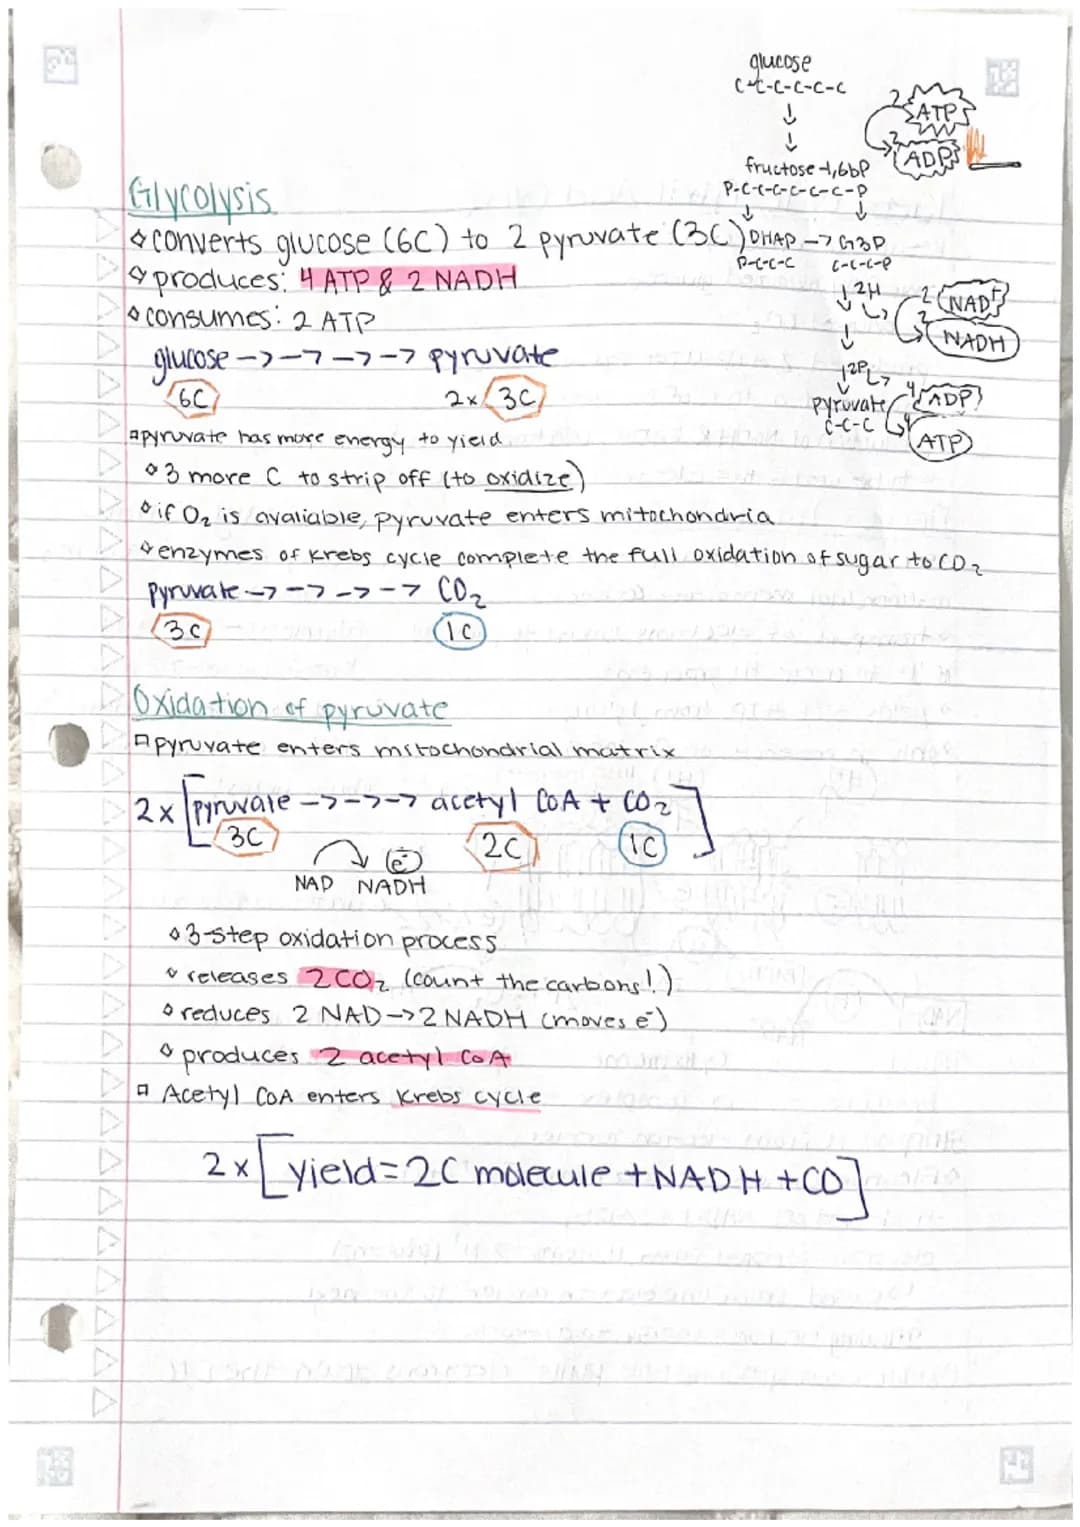 glucose
C-C-C-C-C-C
2 ATP
2 ADP
fructose-1,6bP
P-C-C-C-C-C-C-P
Glycolysis
converts glucose (6C) to 2 pyruvate (3C)
DHAP → G3P
P-C-C-C C-C-C-P
produces: 4 ATP & 2 NADH
2H
2 NAD+
2 NADH
consumes: 2 ATP
glucose →→→→ pyruvate
6C 2x 3C
2Pi
pyruvate
C-C-C
4 ADP
4 ATP
pyruvate has more energy to yield
3 more C to strip off (to oxidize)
if O₂ is avaliable, pyruvate enters mitochondria
enzymes of Krebs cycle complete the full oxidation of sugar to CO₂
pyruvate →→→→ CO₂
3C 1C
Oxidation of pyruvate
pyruvate enters mitochondrial matrix
2x [pyruvate →→→ acetyl CoA + CO₂]
3C 2C 1C
e-
NAD NADH
3-step oxidation process
releases 2 CO₂ (count the carbons!)
reduces 2 NAD → 2 NADH (moves e-)
produces 2 acetyl CoA
Acetyl CoA enters Krebs cycle
2x [yield = 2C molecule + NADH + CO]